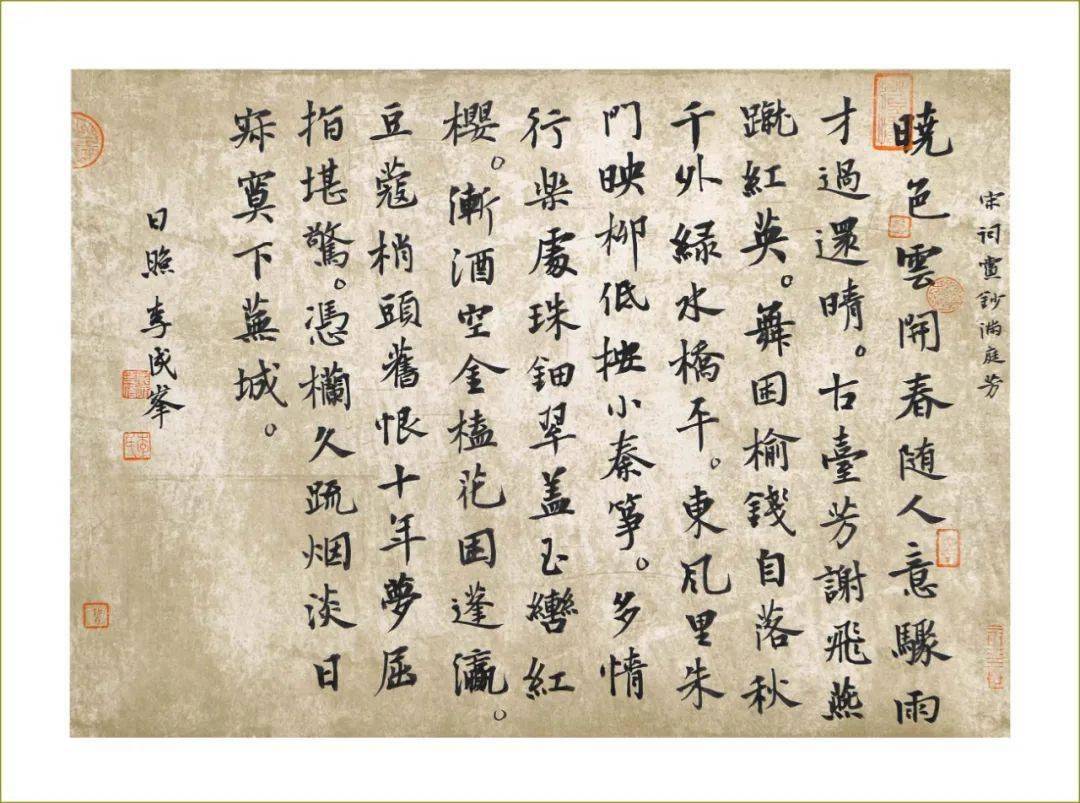 宋词鈔满庭芳
曉色雲開春随人意驟雨
才過還晴。古臺芳謝飛燕
蹴紅英。舞困榆錢自落秋
千外緑水橋平。東風里朱
門映柳低按小秦筝。多情
行樂處珠鈿翠蓋玉轡紅
櫻。漸酒空金榼花困蓬瀛。
豆蔻梢頭舊恨十年夢屈
指堪驚。憑欄久疏烟淡日
寂寞下蕪城。
日照李成峯